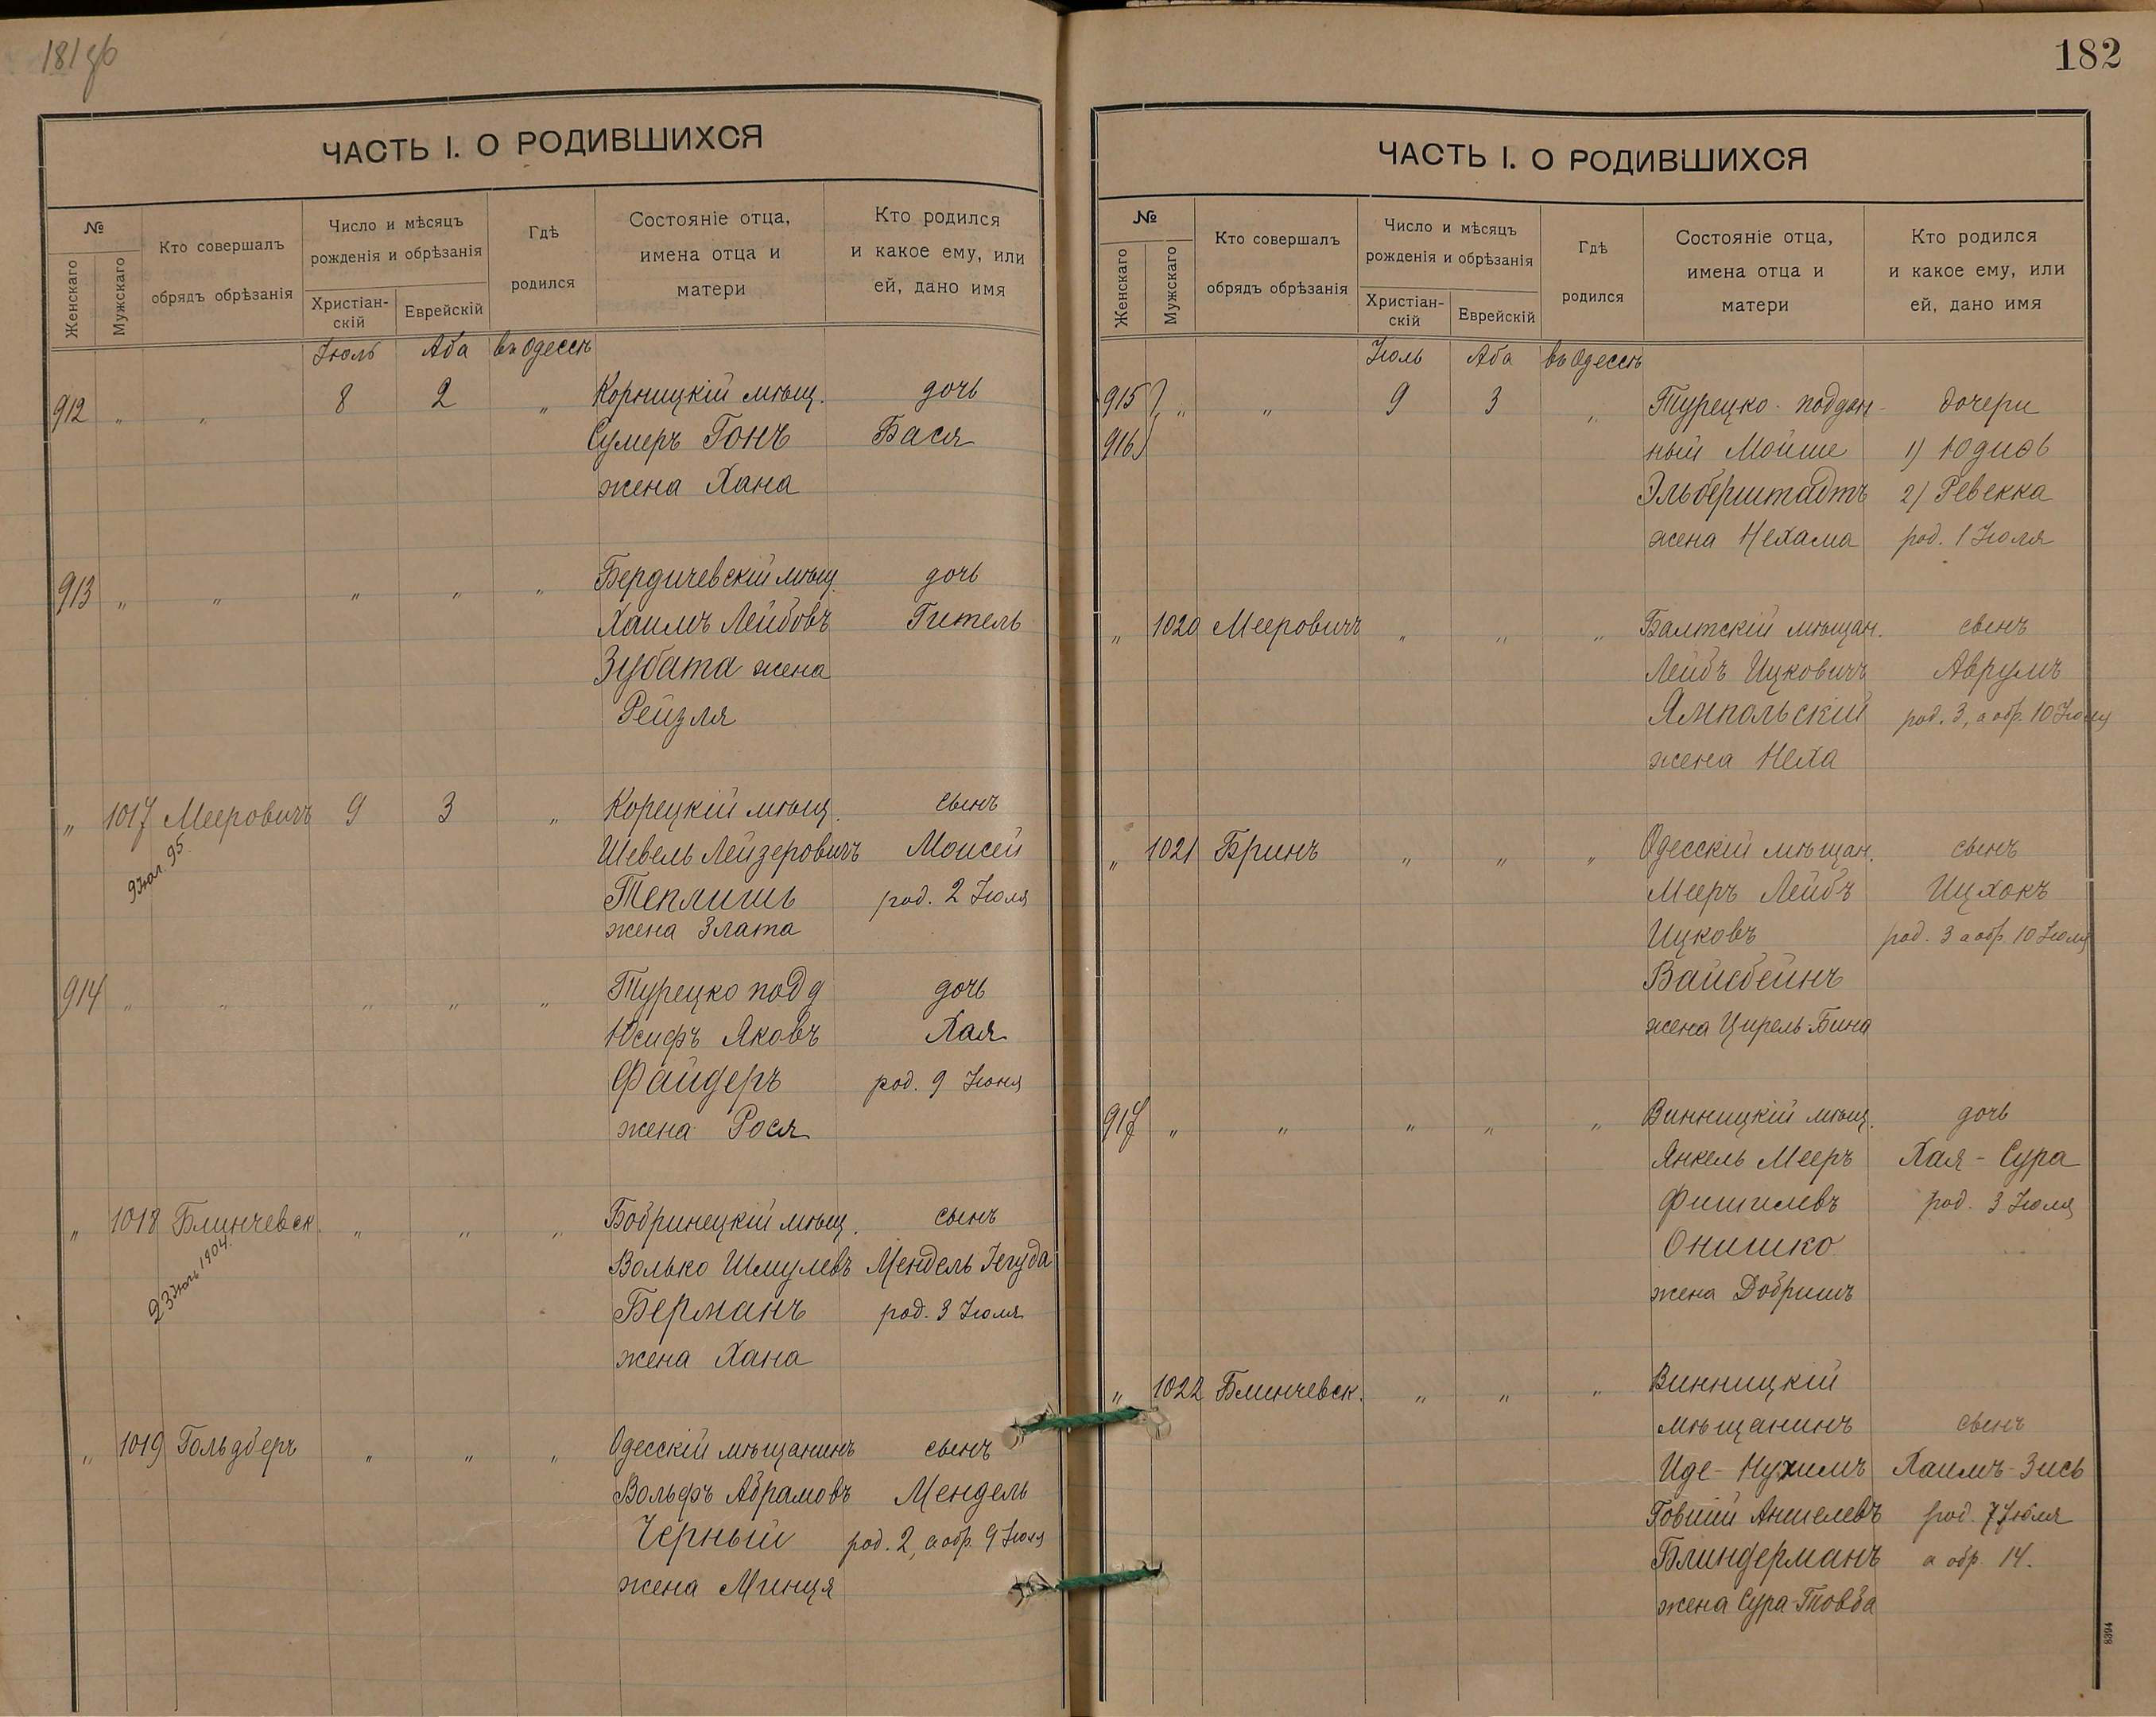 181 об
ЧАСТЬ I. О РОДИВШИХСЯ
№
Женскаго
Мужскаго
Кто совершалъ
обрядъ обрѣзанія
Число и мѣсяцъ
рожденія и обрѣзанія
Христіан-
скій
Еврейскій
Гдѣ
родился
Состояніе отца,
имена отца и
матери
Кто родился
и какое ему, или
ей, дано имя
Іюль Аба въ Одессѣ
912 " " 8 2 " Корницкій мѣщ. дочь
Сумеръ Гонъ Бася
жена Хана
913 " " " " " Бердичевскій мѣщ. дочь
Хаимъ Лейбовъ Гитель
Зубата жена
Рейзля
" 1017 Мееровичъ 9 3 " Корецкій мѣщ. сынъ
9 Іюл. 95
Шевель Лейзеровичъ Моисей
Теплишъ род. 2 Іюля
жена Злата
914 " " " " " Турецко подд дочь
Юсифъ Яковъ Хая
Файдеръ род. 9 Іюня
жена Рося
" 1018 Блинчевск. " " " Бобринецкій мѣщ. сынъ
23 Іюль 1904.
Волько Шмулевъ Мендель Іегуда
Берманъ род. 3 Іюля
жена Хана
" 1019 Гольдберъ " " " Одесскій мѣщанинъ сынъ
Вольфъ Абрамовъ Мендель
Черный род. 2, а обр. 9 Іюля
жена Минця
182
ЧАСТЬ I. О РОДИВШИХСЯ
№
Женскаго
Мужскаго
Кто совершалъ
обрядъ обрѣзанія
Число и мѣсяцъ
рожденія и обрѣзанія
Христіан-
скій
Еврейскій
Гдѣ
родился
Состояніе отца,
имена отца и
матери
Кто родился
и какое ему, или
ей, дано имя
Іюль Аба въ Одессѣ
915 " " 9 3 " Турецко-поддан- дочери
916 ный Мойше 1) Юдиѳь
Эльберштадтъ 2) Ревекка
жена Нехама род. 1 Іюля
" 1020 Мееровичъ " " " Балтскій мѣщан. сынъ
Лейбъ Ицковичъ Аврумъ
Ямпольскій род. 3, а обр. 10 Іюля
жена Неха
" 1021 Бринъ " " " Одесскій мѣщан. сынъ
Мееръ Лейбъ Ицхокъ
Ицковъ род. 3 а обр. 10 Іюля
Вайсбейнъ
жена Цирель-Бина
917 " " " " " Винницкій мѣщ. дочь
Янкель Мееръ Хая-Сура
Фишилевъ род. 3 Іюля
Онишко
жена Добришъ
" 1022 Блинчевск. " " " Винницкій
мѣщанинъ сынъ
Иде-Нухимъ Хаимъ-Зись
Говшій Аншелевъ род. 7 Іюля
Блиндерманъ а обр. 14.
жена Сура-Товба
8394